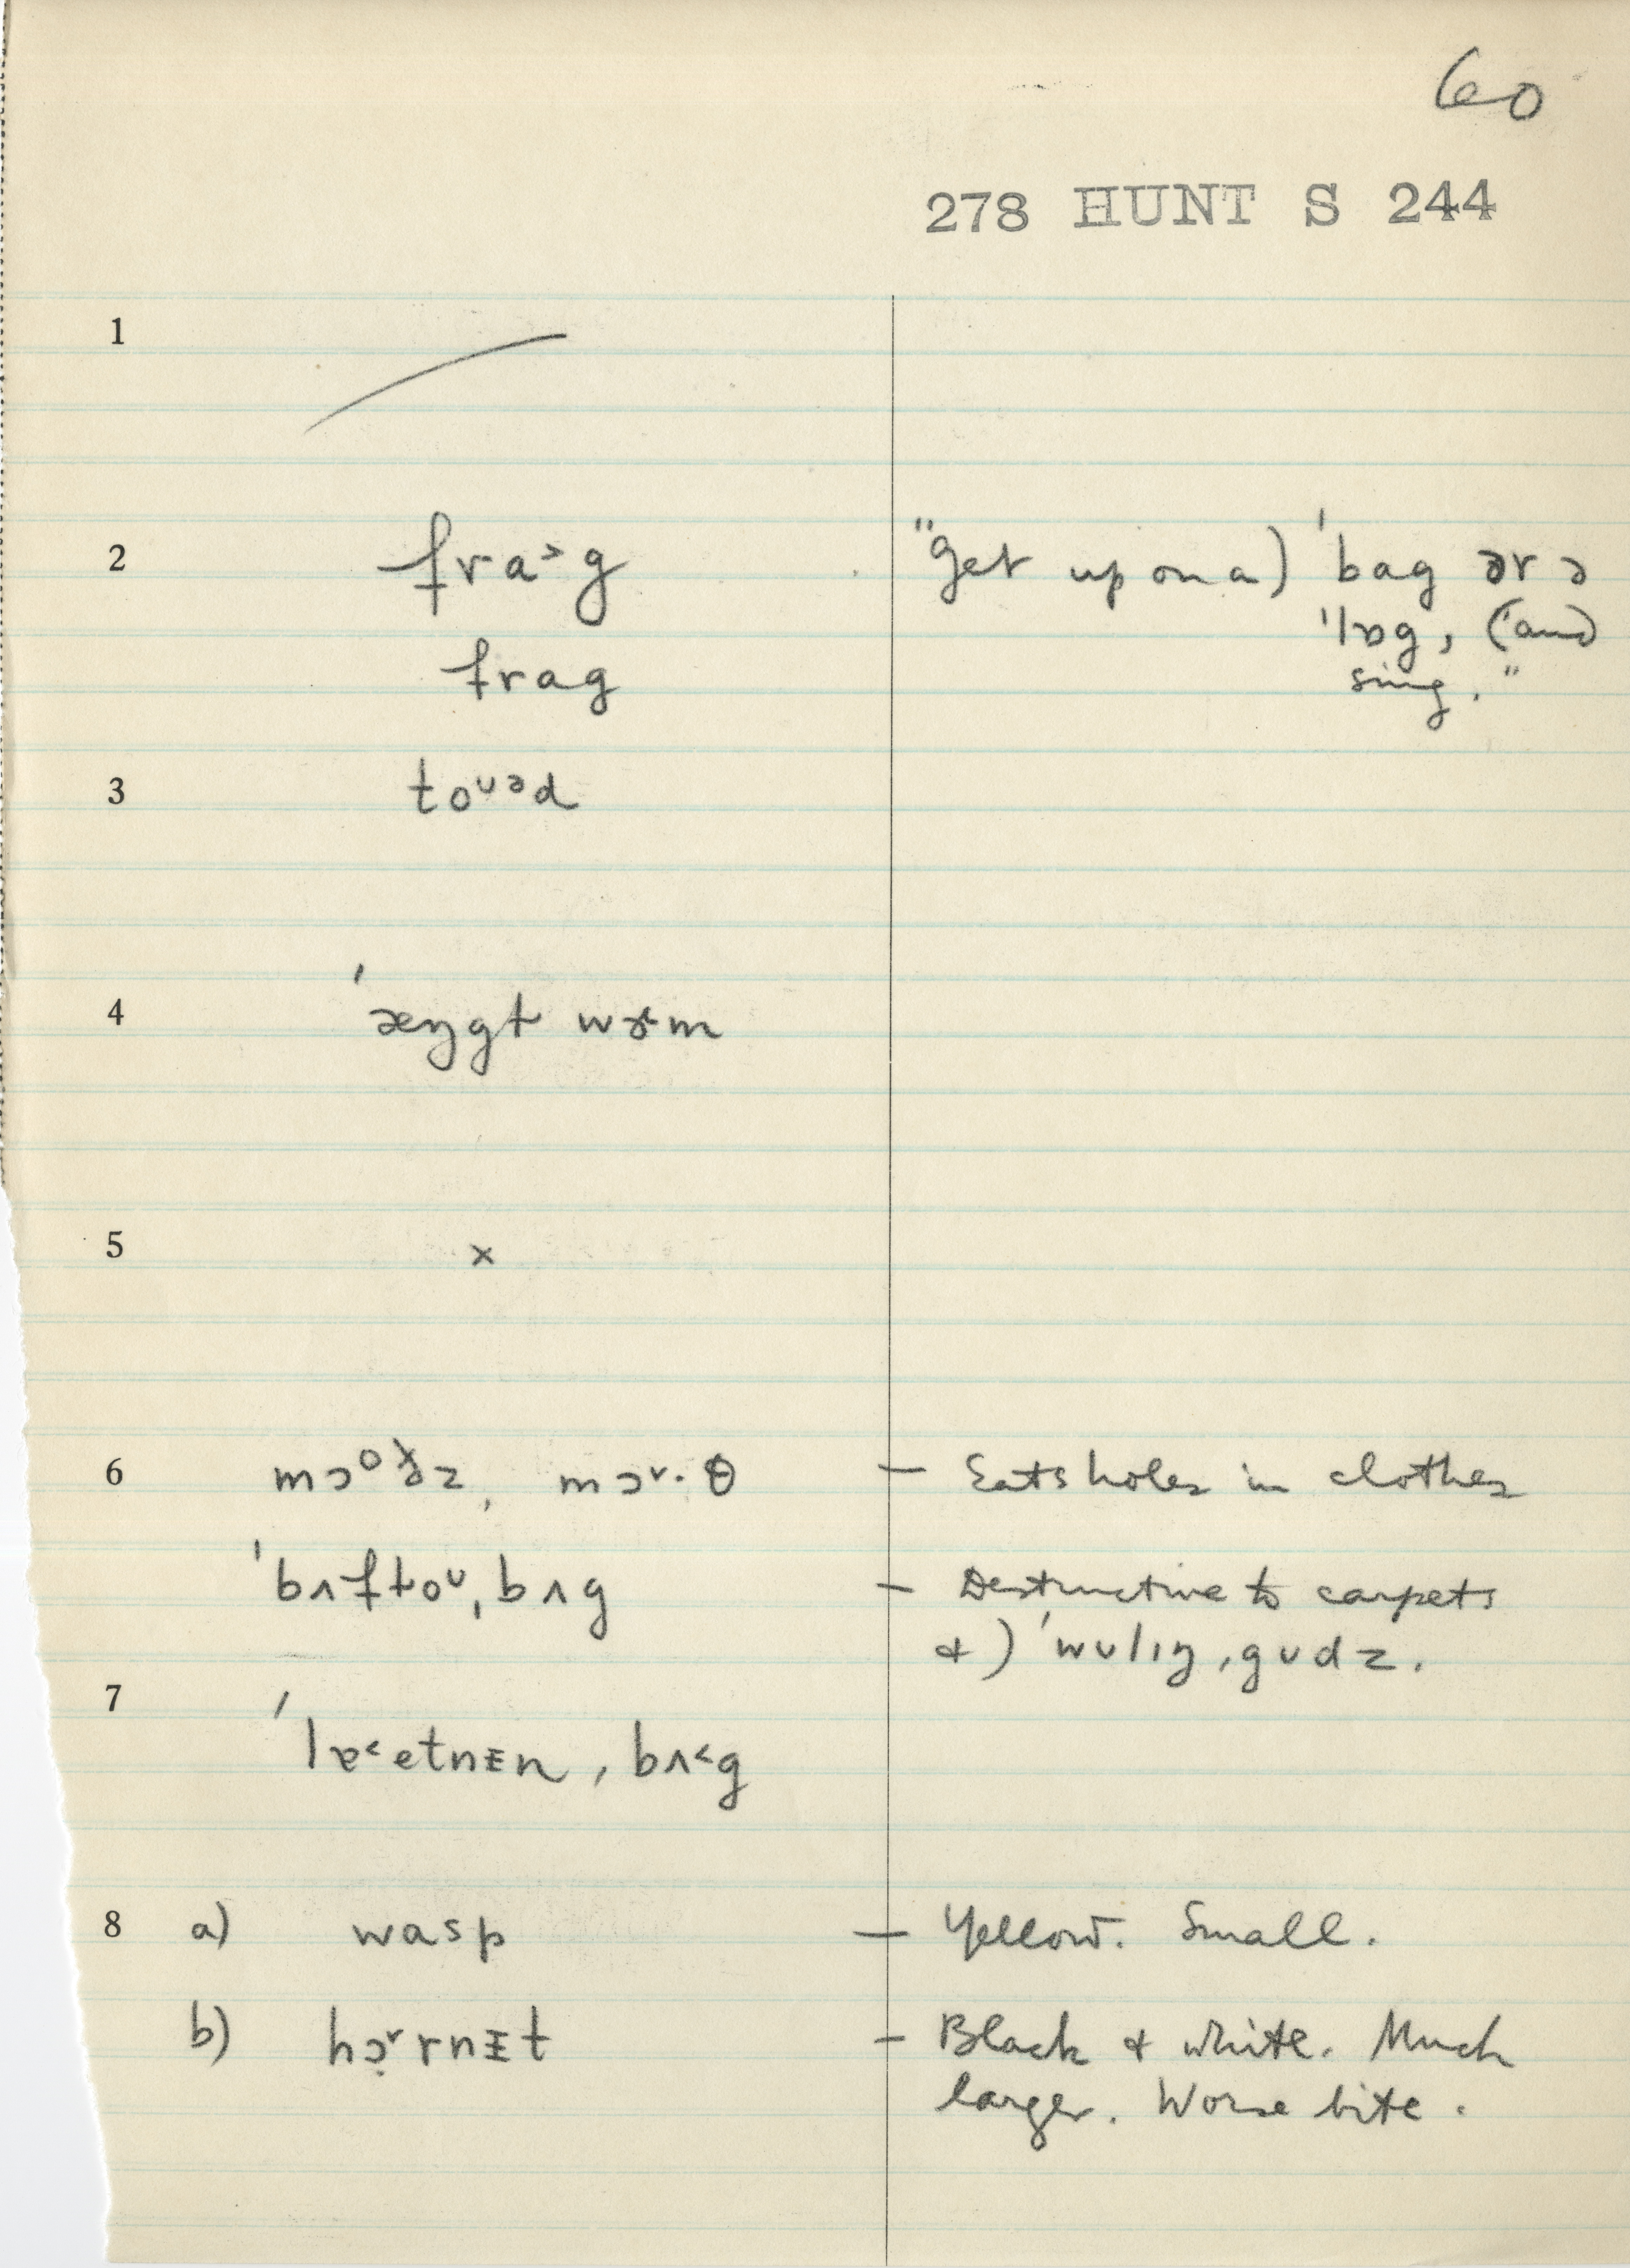 60
278 HUNT S 244
1
2 fra˃g "Get up on a) ˈbag ər ə
ˈlɒg, (and
frag sing."
3 toᶷᵊd
4 ˈæŋgt wɚm
5 x
6 mɔᵒðz, mɔ˅·θ — Eats holes in clothes
ˈbʌftoᶷˌbʌg — Destructive to carpets
&) ˈwʊlɪŋˌgʊdz.
7 ˈlɐ˂etnᵻnˌbʌ˂g
8 a) wasp — Yellow. Small.
b) hɔ̣˅rnᵻt — Black & white. Much
larger. Worse bite.